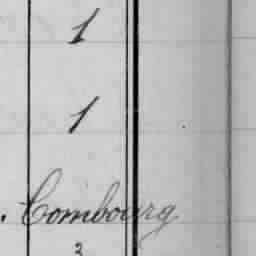 1
1
. Combourg
2